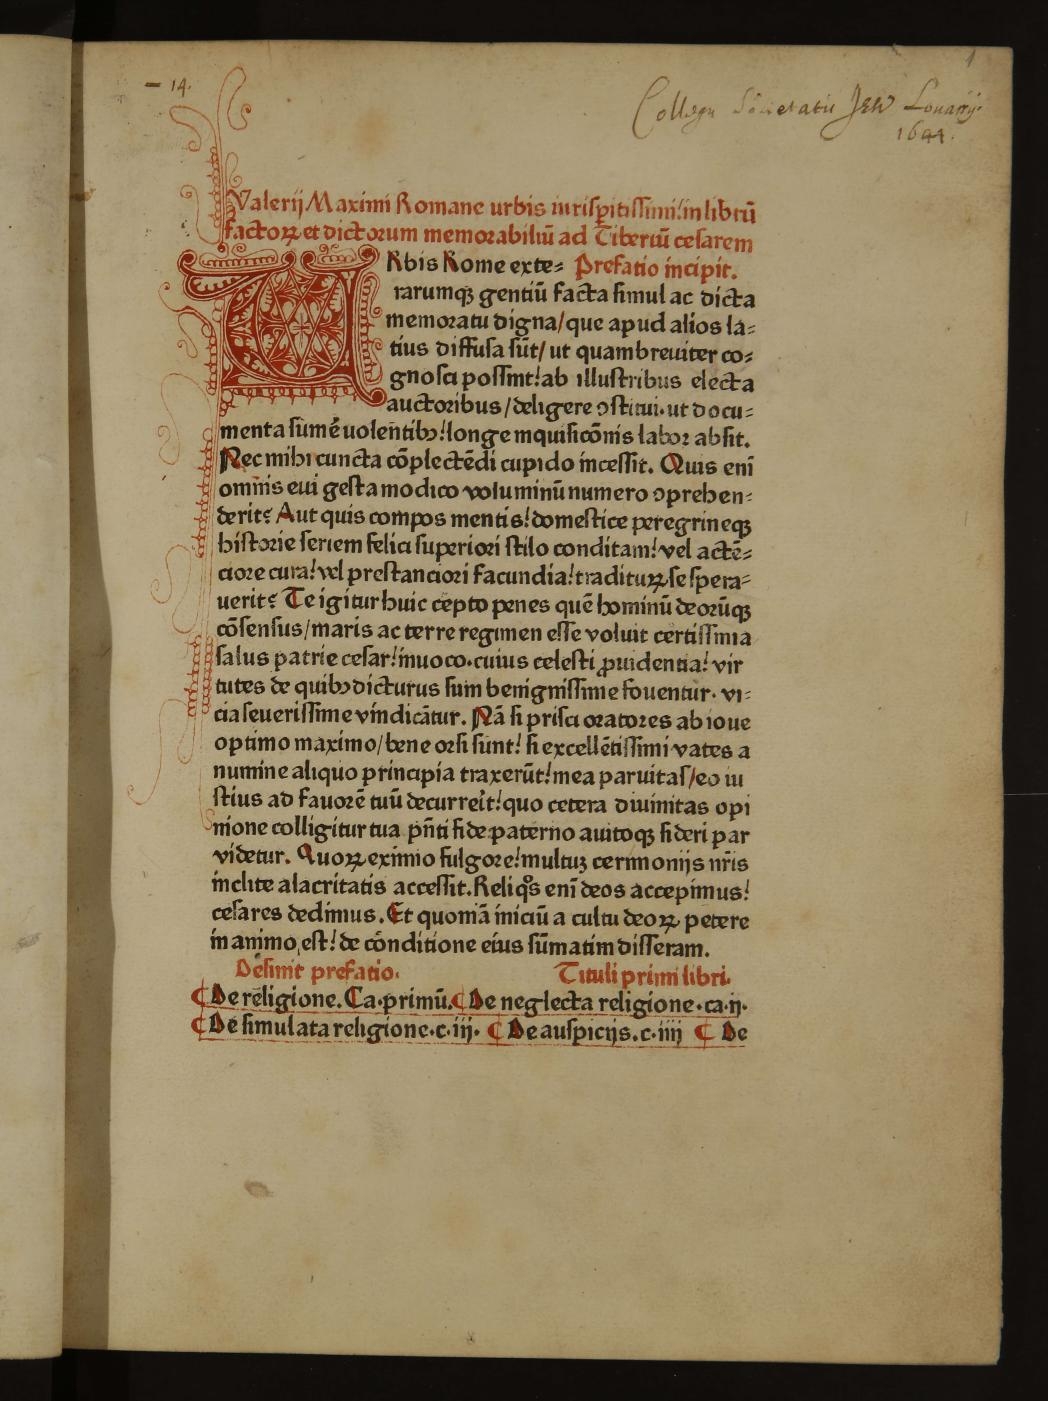 - 14.
1
Collegii Societatis Jesu Lovanij.
1644.
Valerij Maximi Romane urbis iurisꝑitissimi! in librū
factoꝝ et dictorum memorabiliū ad Tiberiū cesarem
URbis Rome exte= Prefatio incipit.
rarumqꝫ gentiū facta simul ac dicta
memoratu digna/que apud alios la=
tius diffusa sūt/ ut quam breuiter co=
gnosci possint! ab illustribus electa
auctoribus/deligere ꝯstitui. ut docu=
menta sumē uolentibꝰ! longe inquisicōnis labor absit.
Nec mihi cuncta cōplectēdi cupido incessit. Quis enī
omnis eui gesta modico voluminū numero ꝯprehen=
derit? Aut quis compos mentis! domestice peregrineqꝫ
historie seriem felici superiori stilo conditam! vel actē=
ciore cura! vel prestanciori facundia! traдituꝝ se spera=
uerit? Te igitur huic cepto penes quē hominū deorūqꝫ
cōsensus/maris ac terre regimen esse voluit certissima
salus patrie cesar! inuoco. cuius celesti ꝓuidentia! vir
tutes de quibꝰ dicturus sum benignissime fouentur. vi=
cia seuerissime vindicātur. Nā si prisci oratores ab ioue
optimo maximo/bene orsi sunt! si excellētissimi vates a
numine aliquo principia traxerūt! mea paruitas/eo iu
stius ad fauorē tuū decurreīt! quo cetera diuinitas opi
nione colligitur tua p̄nti fide paterno auitoqꝫ sideri par
videtur. Quoꝝ eximio fulgore! multuꝫ cerimonijs nr̄is
inclite alacritatis accessit. Reliqͦs enī deos accepimus!
cesares dedimus. Et quoniā iniciū a cultu deoꝝ petere
in animo est! de cōnditione eius sūmatim disseram.
Desinit prefatio. Tituli primi libri.
¶ De religione. Ca. primū. ¶ De neglecta religione. ca. ij.
¶ De simulata religione. c. iij. ¶ De auspicijs. c. iiij ¶ De